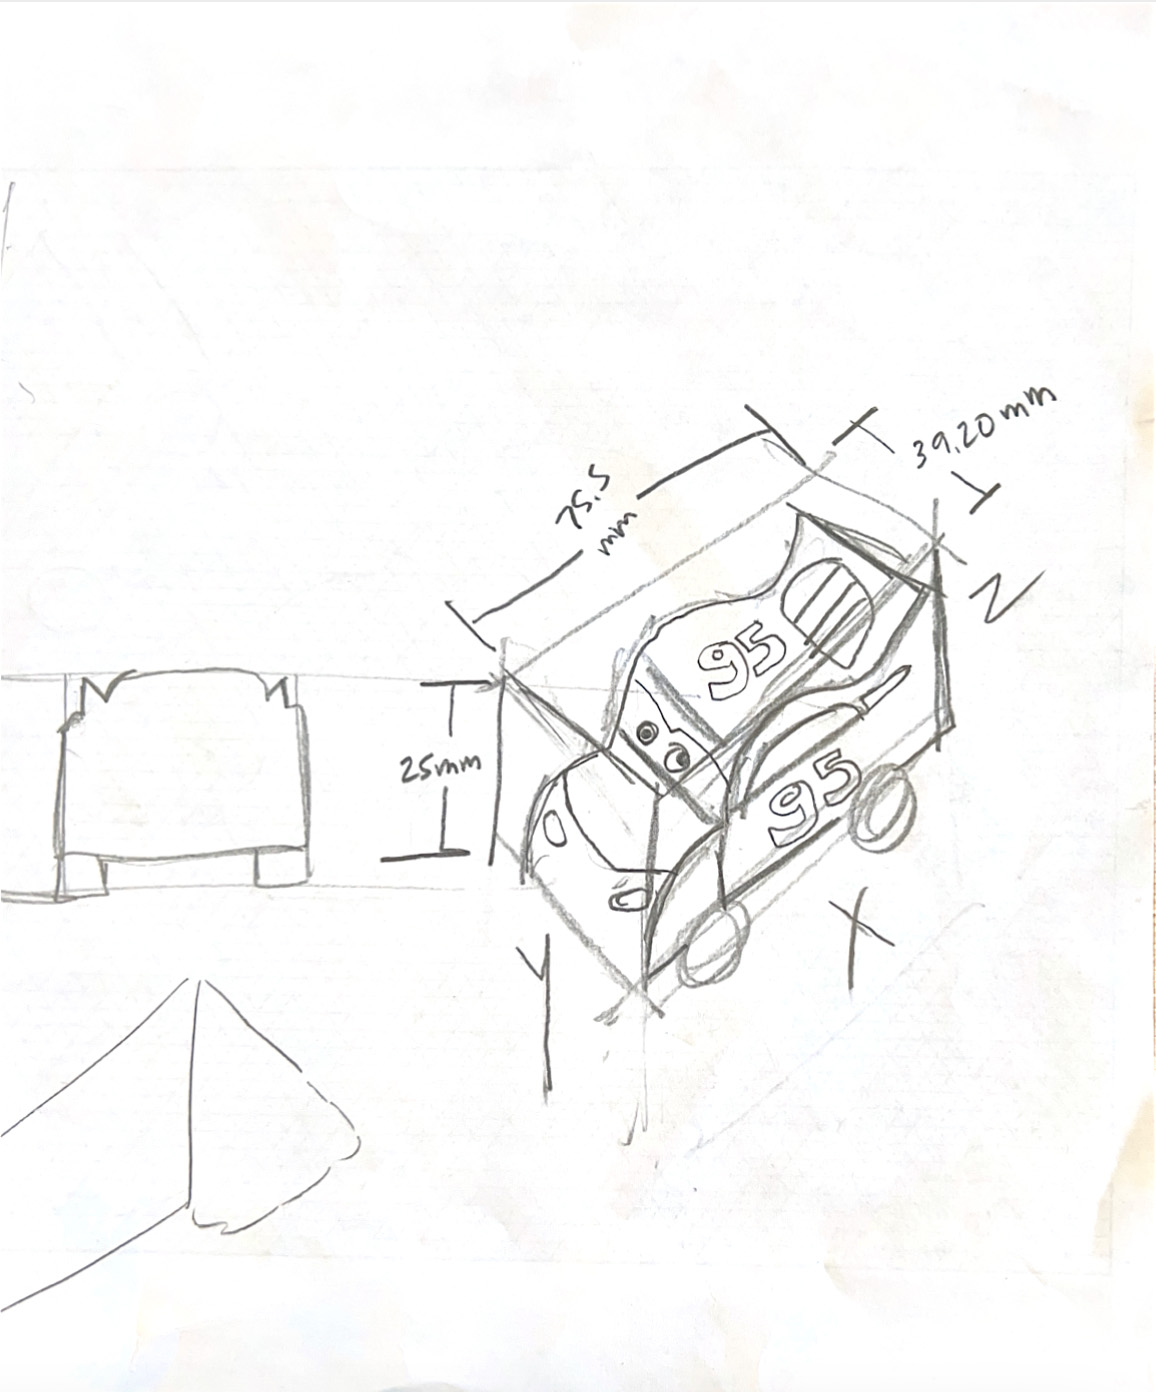 39.20mm
75.5
mm
Z
95
25mm
95
X
Y